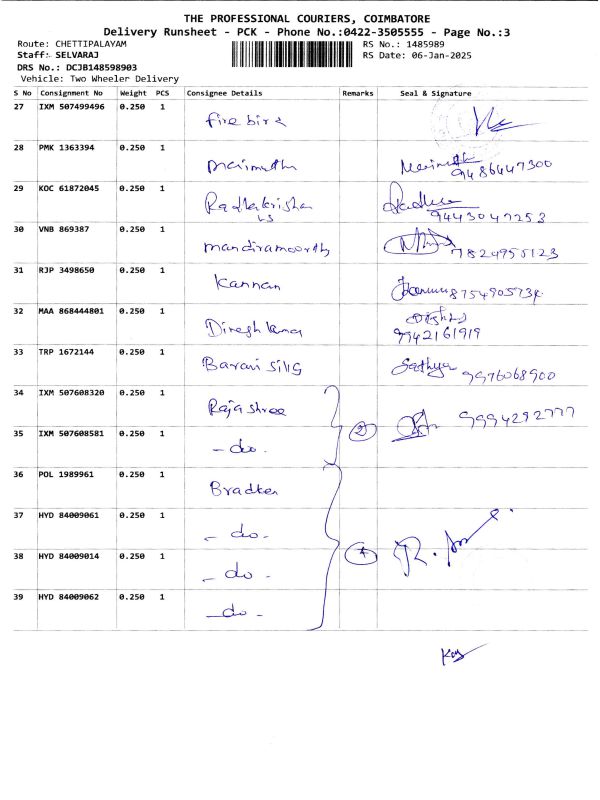 THE PROFESSIONAL COURIERS, COIMBATORE
Delivery Runsheet - PCK - Phone No.:0422-3505555 - Page No.:3
Route: CHETTIPALAYAM RS No.: 1485989
Staff: SELVARAJ RS Date: 06-Jan-2025
DRS No.: DCJB148598903
Vehicle: Two Wheeler Delivery
S No Consignment No Weight PCS Consignee Details Remarks Seal & Signature
27 IXM 507499496 0.250 1 fire bird
28 PMK 1363394 0.250 1 marimuthu 9486447300
29 KOC 61872045 0.250 1 Radhakrishan 9443047253
30 VNB 869387 0.250 1 mandiramoorthy 7824955123
31 RJP 3498650 0.250 1 Kannan
32 MAA 868444801 0.250 1 Dinesh kumar
9942161919
33 TRP 1672144 0.250 1 Barani silks Sathya 9976068900
34 IXM 507608320 0.250 1 Rajashree 9994292777
35 IXM 507608581 0.250 1 - do - 2
36 POL 1989961 0.250 1 Bradken
37 HYD 84009061 0.250 1 - do -
38 HYD 84009014 0.250 1 - do - 4
39 HYD 84009062 0.250 1 - do -